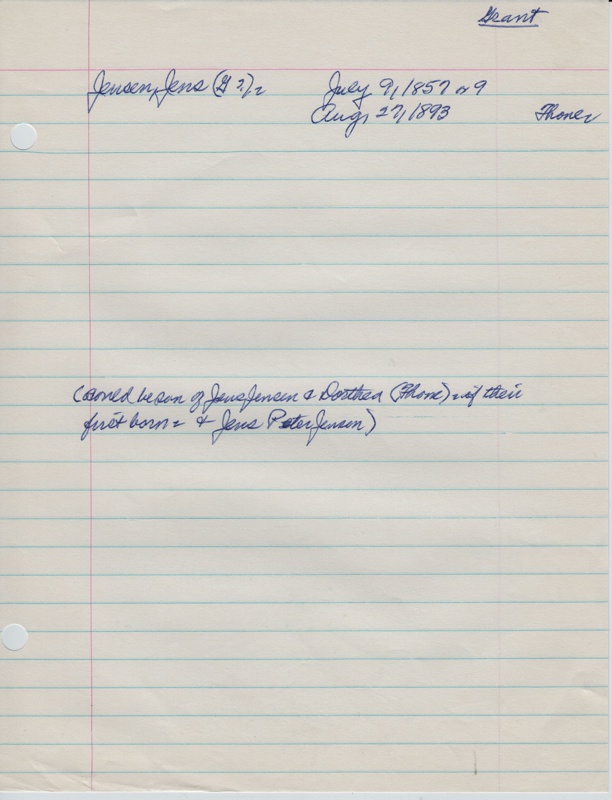 Grant
Jensen, Jens (G?), July 9, 1857 or 9
Aug, 27, 1893 Thone
(could be son of Jens Jensen & Dorthea (Thone) if their
first born & Jens Peter Jensen)